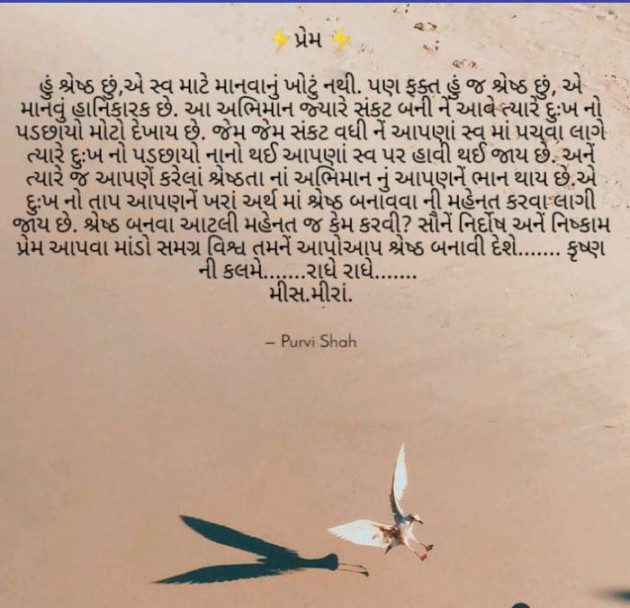 ⚡પ્રેમ ⚡
હું શ્રેષ્ઠ છું,એ સ્વ માટે માનવાનું ખોટું નથી. પણ ફક્ત હું જ શ્રેષ્ઠ છું, એ
માનવું હાનિકારક છે. આ અભિમાન જ્યારે સંકટ બની નેં આવે ત્યારે દુઃખ નો
પડછાયો મોટો દેખાય છે. જેમ જેમ સંકટ વધી નેં આપણાં સ્વ માં પ્રચવા લાગે
ત્યારે દુઃખ નો પડછાયો નાનો થઈ આપણાં સ્વ પર હાવી થઈ જાય છે. અનેં
ત્યારે જ આપણેં કરેલાં શ્રેષ્ઠતા નાં અભિમાન નું આપણનેં ભાન થાય છે.એ
દુઃખ નો તાપ આપણનેં ખરાં અર્થ માં શ્રેષ્ઠ બનાવવા ની મહેનત કરવા લાગી
જાય છે. શ્રેષ્ઠ બનવા આટલી મહેનત જ કેમ કરવી? સૌનેં નિર્દોષ અનેં નિષ્કામ
પ્રેમ આપવા માંડો સમગ્ર વિશ્વ તમનેં આપોઆપ શ્રેષ્ઠ બનાવી દેશે....... કૃષ્ણ
ની કલમે.......રાધે રાધે.......
મીસ.મીરાં.
– Purvi Shah